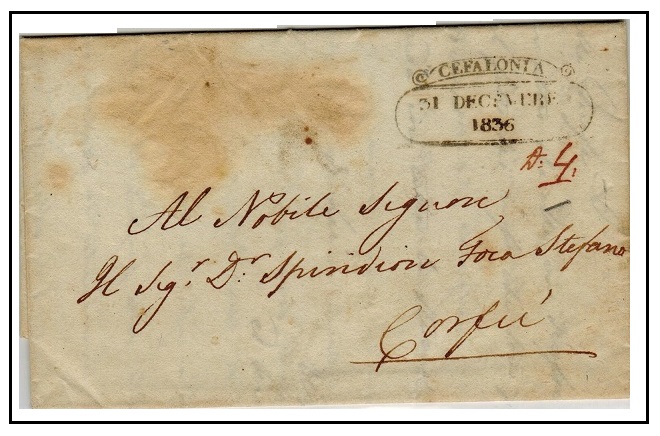 CEFALONIA
31 DECEMBRE
1836
A. 4.
Al Nobile Signore
Il Sigr. Dr. Spiridion Foca Stefano
Corfù